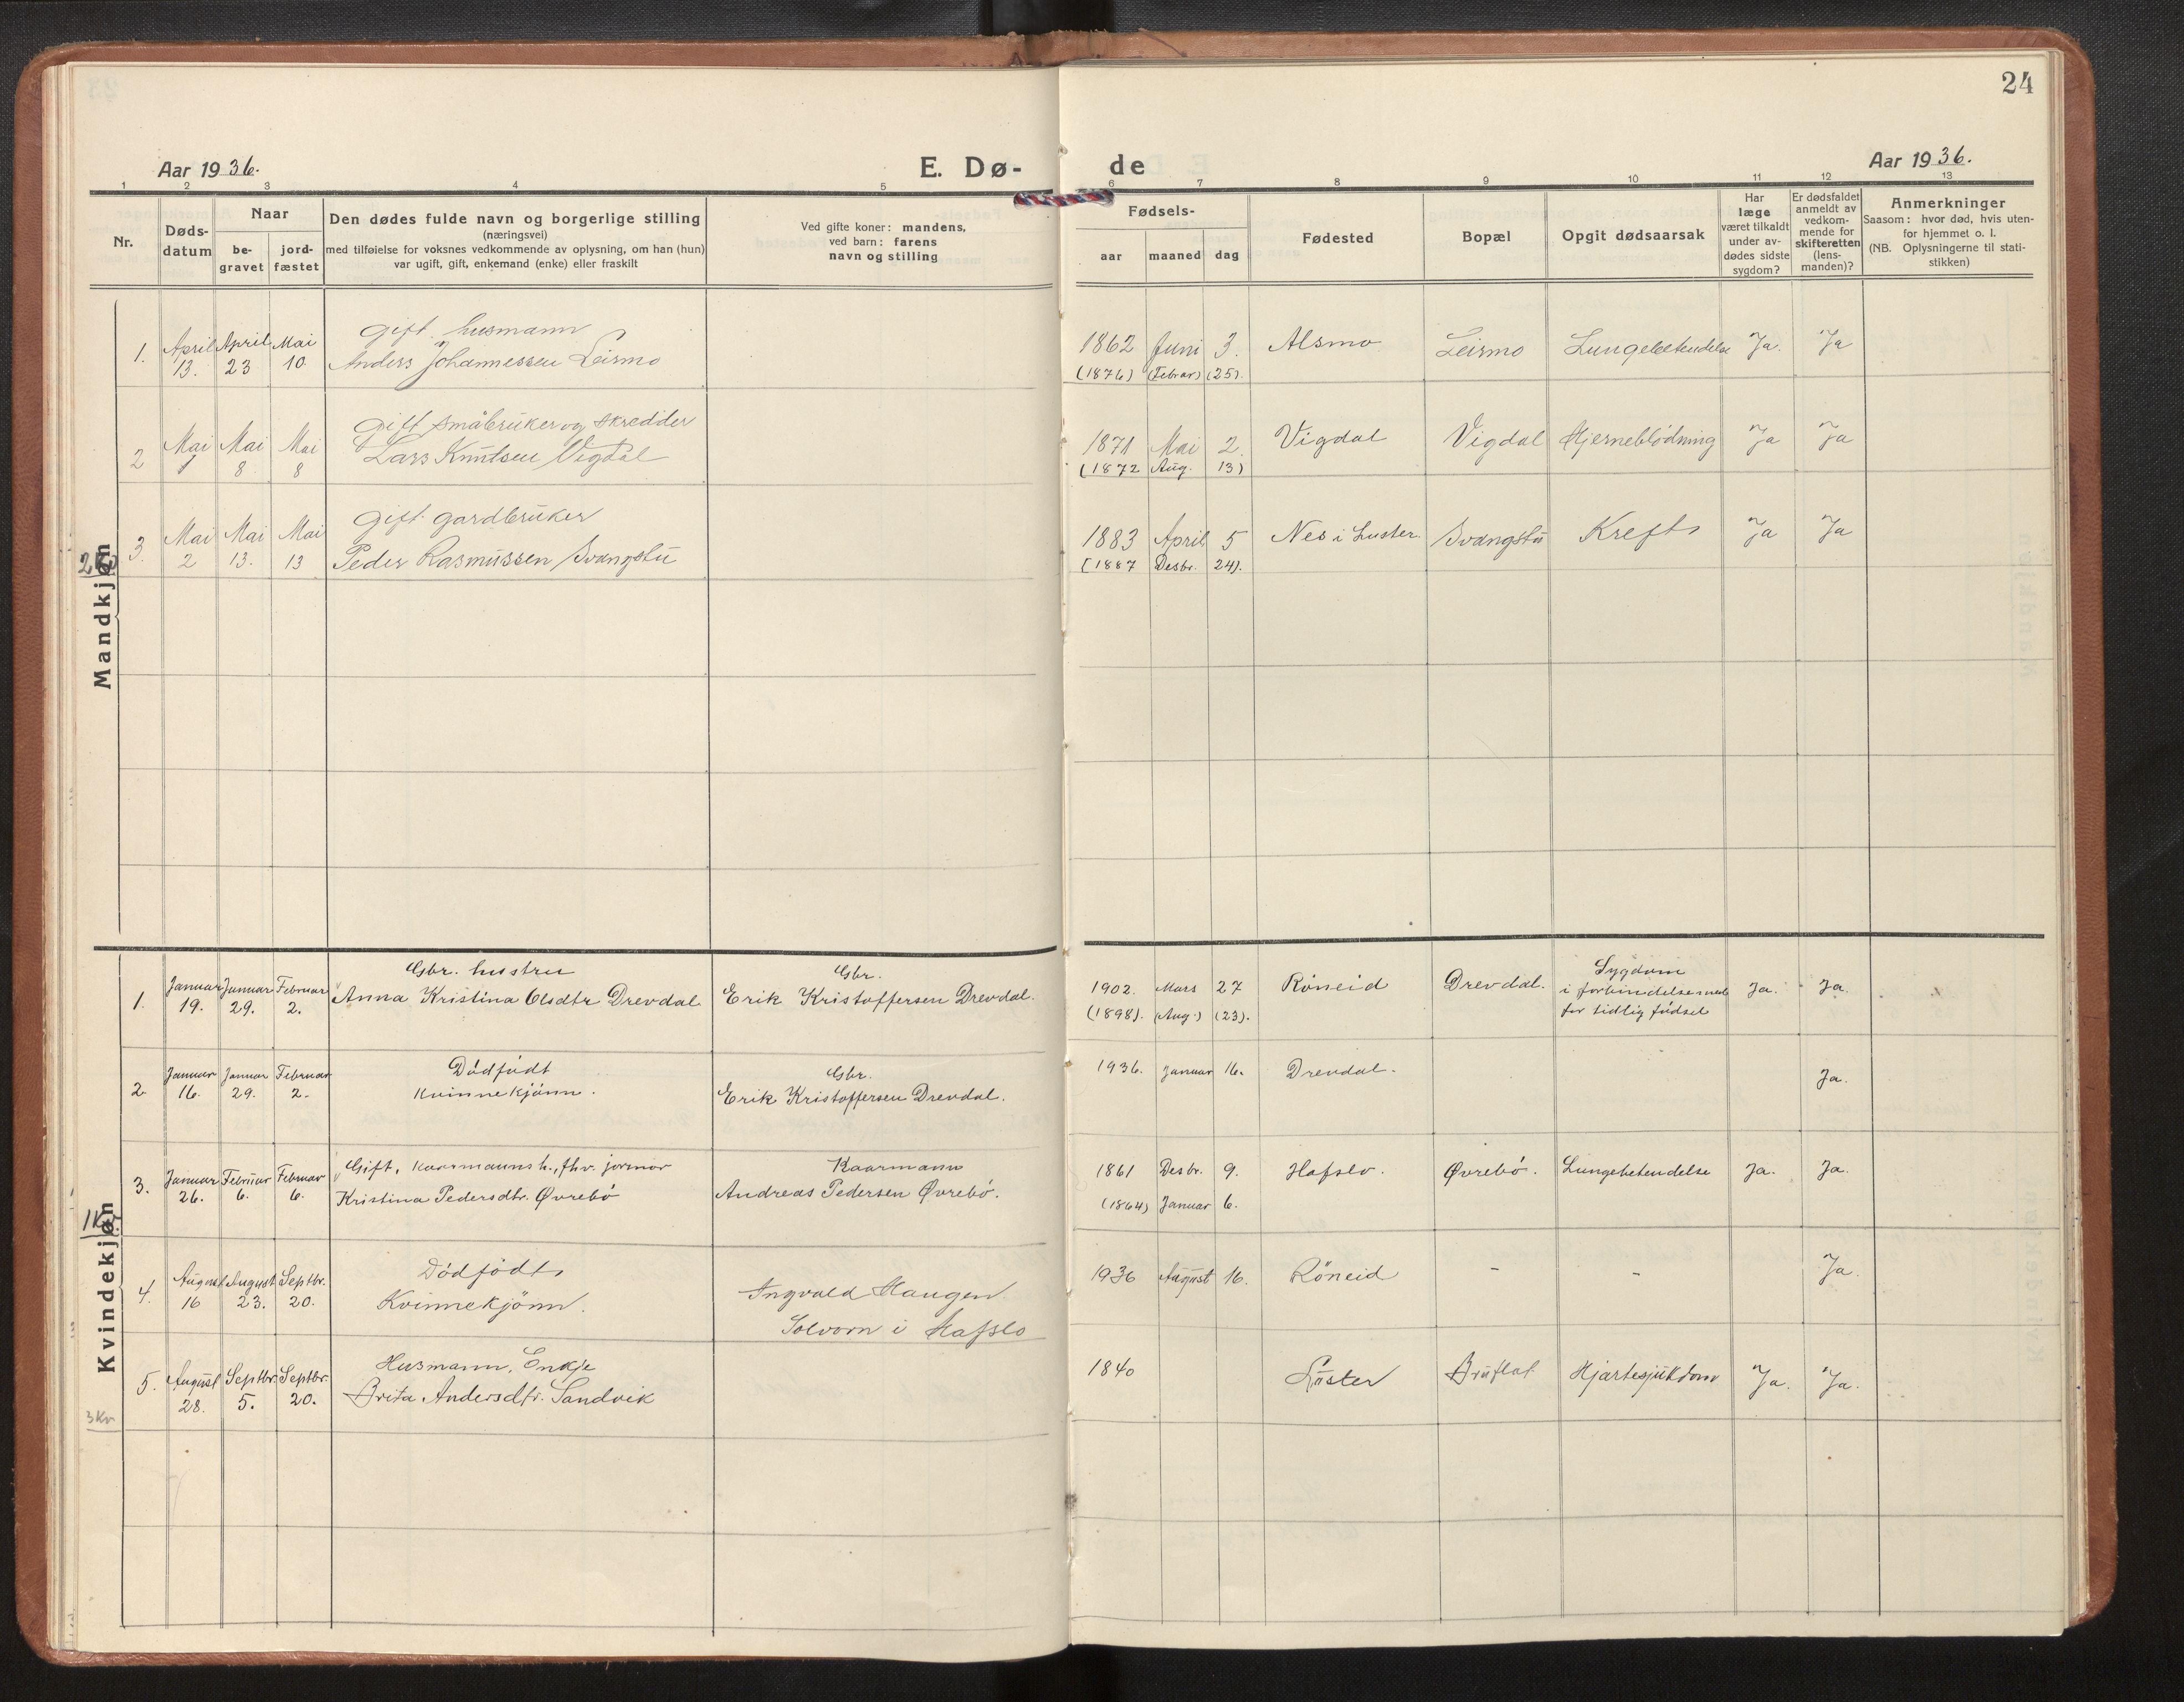 24
Aar 1936.
E. Dø-
de
Aar 1936.
1 2 3 4 5 6 7 8 9 10 11 12 13
Nr.
Døds-
datum
Naar
be-
gravet
jord-
fæstet
Den dødes fulde navn og borgerlige stilling
(næringsvei)
med tilføielse for voksnes vedkommende av oplysning, om han (hun)
var ugift, gift, enkemand (enke) eller fraskilt
Ved gifte koner: mandens,
ved barn: farens
navn og stilling
Fødsels-
aar maaned dag
Fødested
Bopæl
Opgit dødsaarsak
Har
læge
været tilkaldt
under av-
dødes sidste
sygdom?
Er dødsfaldet
anmeldt av
vedkom-
mende for
skifteretten
(lens-
manden)?
Anmerkninger
Saasom: hvor død, hvis uten-
for hjemmet o. l.
(NB. Oplysningerne til stati-
stikken)
Mandkjøn
1. April 13. April 23 Mai 10.
Gift husmann
Anders Johannessen Leirmo
1862 Juni 3. Alsmo Leirmo Lungebetendelse Ja. Ja
(1876) (Februar) (25).
2 Mai 1 Mai 8 Mai 8
Gift småbruker og skredder
Lars Knutsen Vigdal
1871 Mai 2. Vigdal Vigdal Hjerneblödning Ja Ja
(1872 Aug. 13)
3. Mai 2 Mai 13. Mai 13
Gift gardbruker
Peder Rasmussen Svangstu
1883 April 5 Nes i Luster. Svangstu Kreft Ja Ja
(1887 Desbr. 24).
Kvindekjøn
1. Januar 19. Januar 29. Februar 2.
Gbr. hustru
Anna Kristina Olsdtr Drevdal
Gbr.
Erik Kristoffersen Drevdal.
1902. Mars 27 Röneid Drevdal.
Sygdom
i forbindelse med
for tidlig födsel
Ja. Ja.
(1898). (Aug.) (23).
2. Januar 16. Januar 29. Februar 2.
Dödfödt
kvinnekjönn.
Gbr.
Erik Kristoffersen Drevdal.
1936. Januar 16. Drevdal. Ja.
3. Januar 26. Februar 6. Februar 6.
Gift, kaarmanns h., fhv. jormor
Kristina Pedersdtr. Øvrebö
Kaarmann
Andreas Pedersen Øvrebö.
1861 Desbr. 9. Hafslo. Øvrebö. Lungebetendelse Ja. Ja.
(1864) Januar 6.
1Kv
4. August 16 August 23. Septbr. 20.
Dödfödt
Kvinnekjönn.
Ingvald Haugen
Solvorn i Hafslo
1936 August 16. Röneid - - Ja.
5. August 28. Septbr. 5. Septbr. 20.
Husmann, Enkje
Brita Andersdtr. Sandvik
1840 Luster Bruflat Hjartesjukdom Ja. Ja.
3Kv